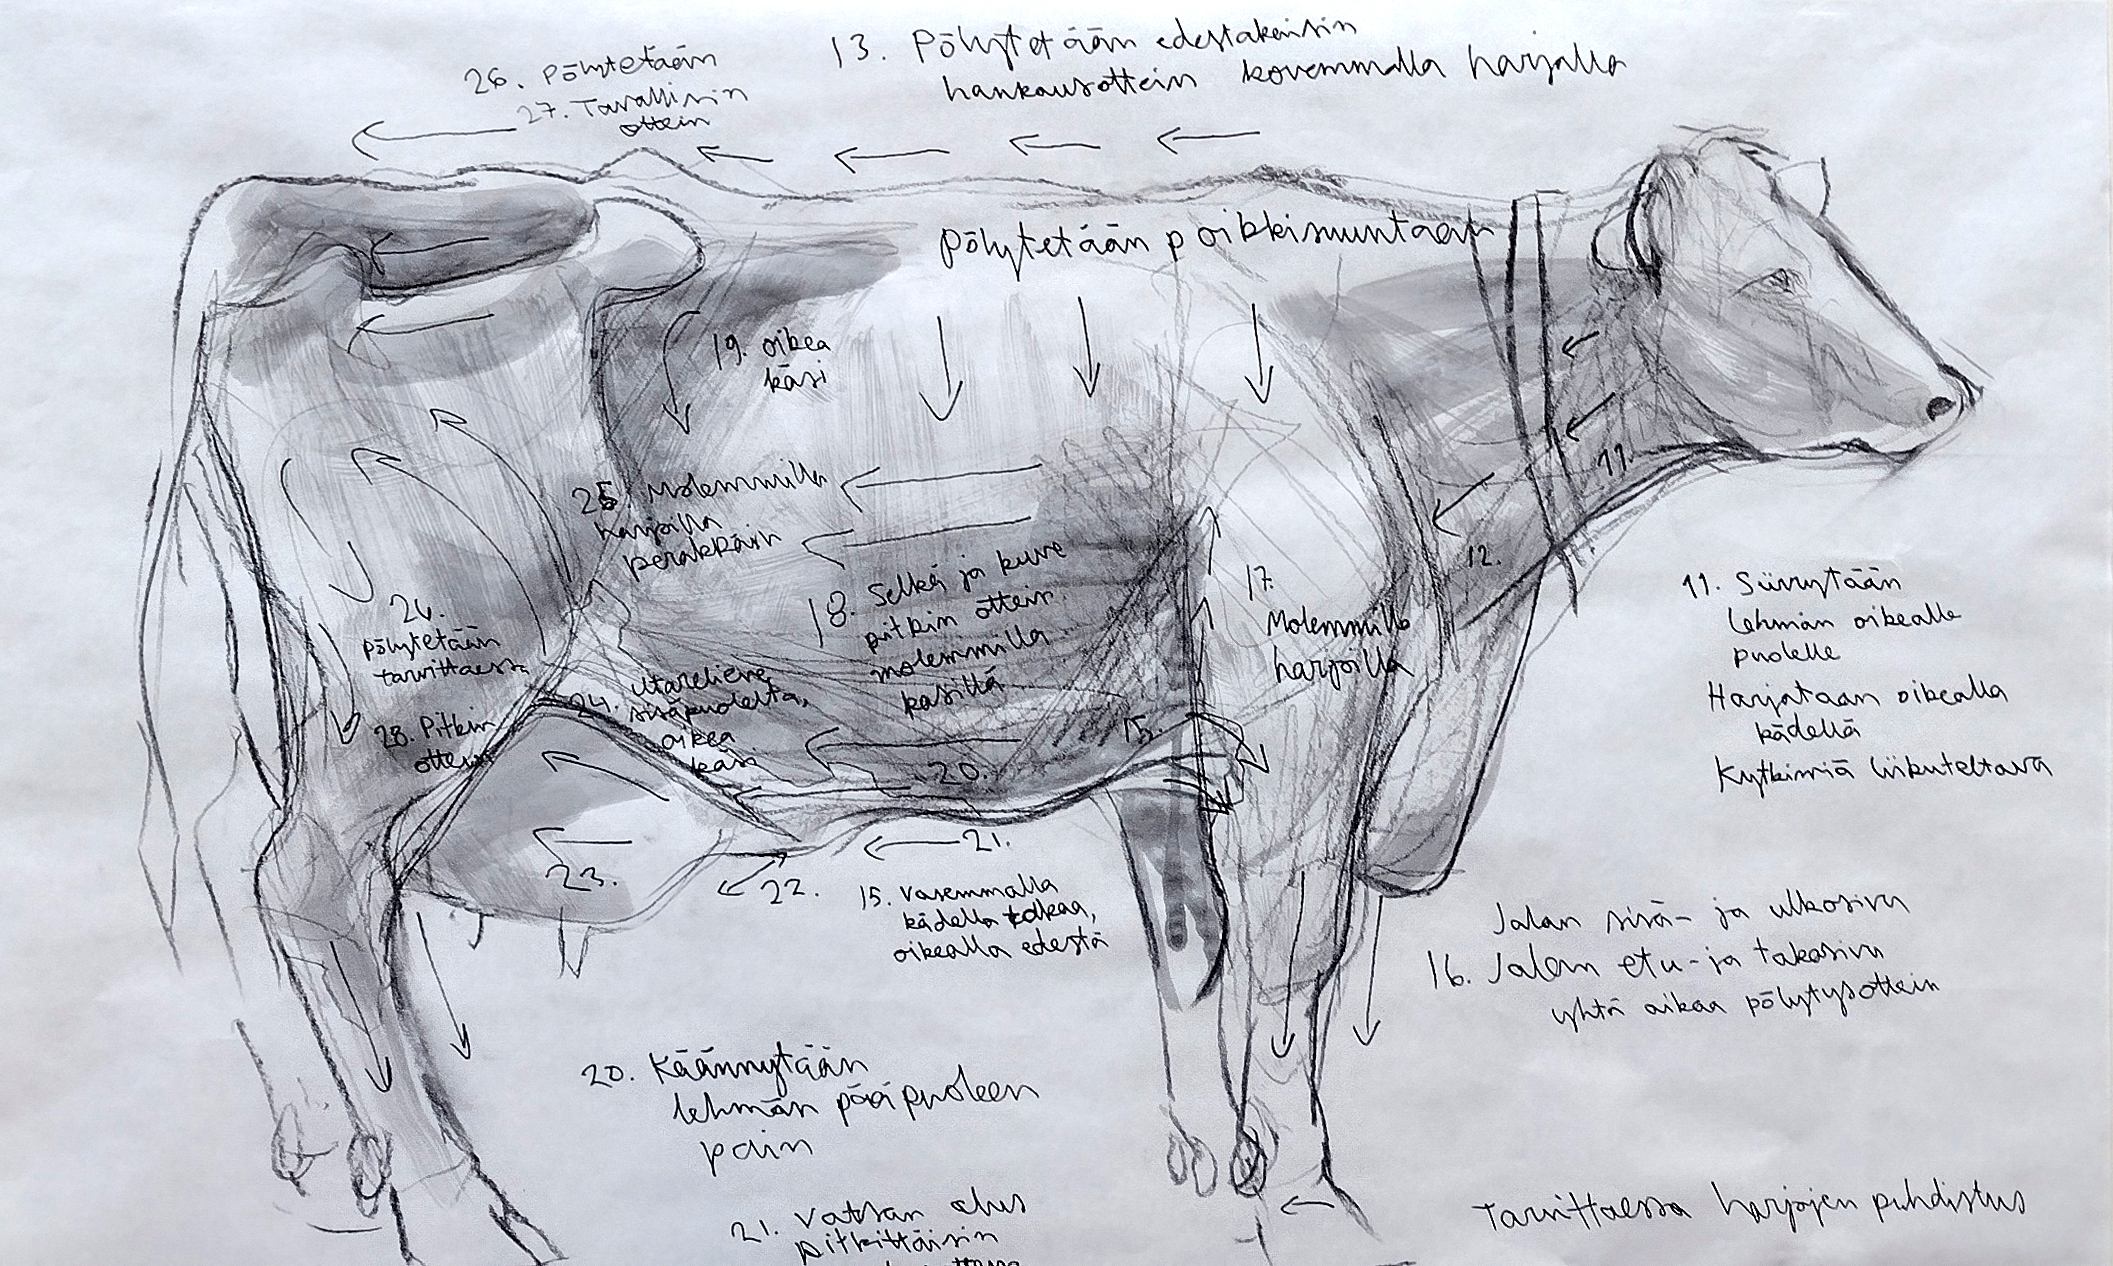 26. Pölytetään
27. Tavallisin
ottein
13. Pölytetään edestakaisin
hankausottein kovemmalla harjalla
Pölytetään poikkisuuntaan
19. oikea
käsi
11.
25. Molemmilla
harjoilla
peräkkäin
12.
18. Selkä ja kuve
pitkin ottein
molemmilla
käsillä
17.
Molemmilla
harjoilla
26.
pölytetään
tarvittaessa
24. Utareliene
sisäpuolelta,
oikea
käsi
28. Pitkin
ottein
15.
20.
21.
22.
23.
11. Siirrytään
lehmän oikealle
puolelle
Harjataan oikealla
kädellä
Kytkimiä liikuteltava
15. vasemmalla
kädellä takaa,
oikealla edestä
Jalan sisä- ja ulkosivu
16. Jalan etu- ja takasivu
yhtä aikaa pölytysottein
20. Käännytään
lehmän pääpuoleen
päin
21. vatsan alus
pitkittäisin
Tarvittaessa harjojen puhdistus